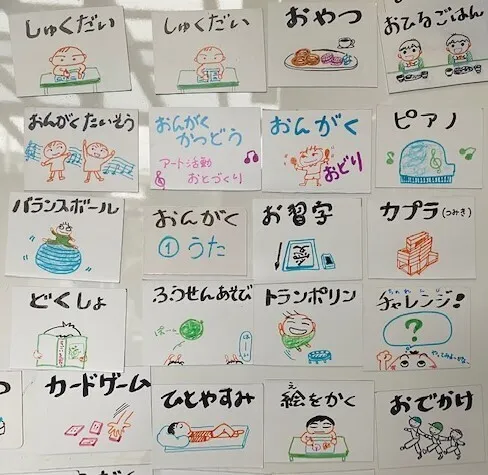 しゅくだい
しゅくだい
おやつ
おひるごはん
おんがくたいそう
おんがく
かつどう
アート活動
おとづくり
おんがく
おどり
ピアノ
バランスボール
おんがく
① うた
お習字
カプラ(つみき)
どくしょ
ふうせんあそび
ぽーん
はーい
トランポリン
チャレンジ!
?
カードゲーム
ひとやすみ
え
絵をかく
おでかけ